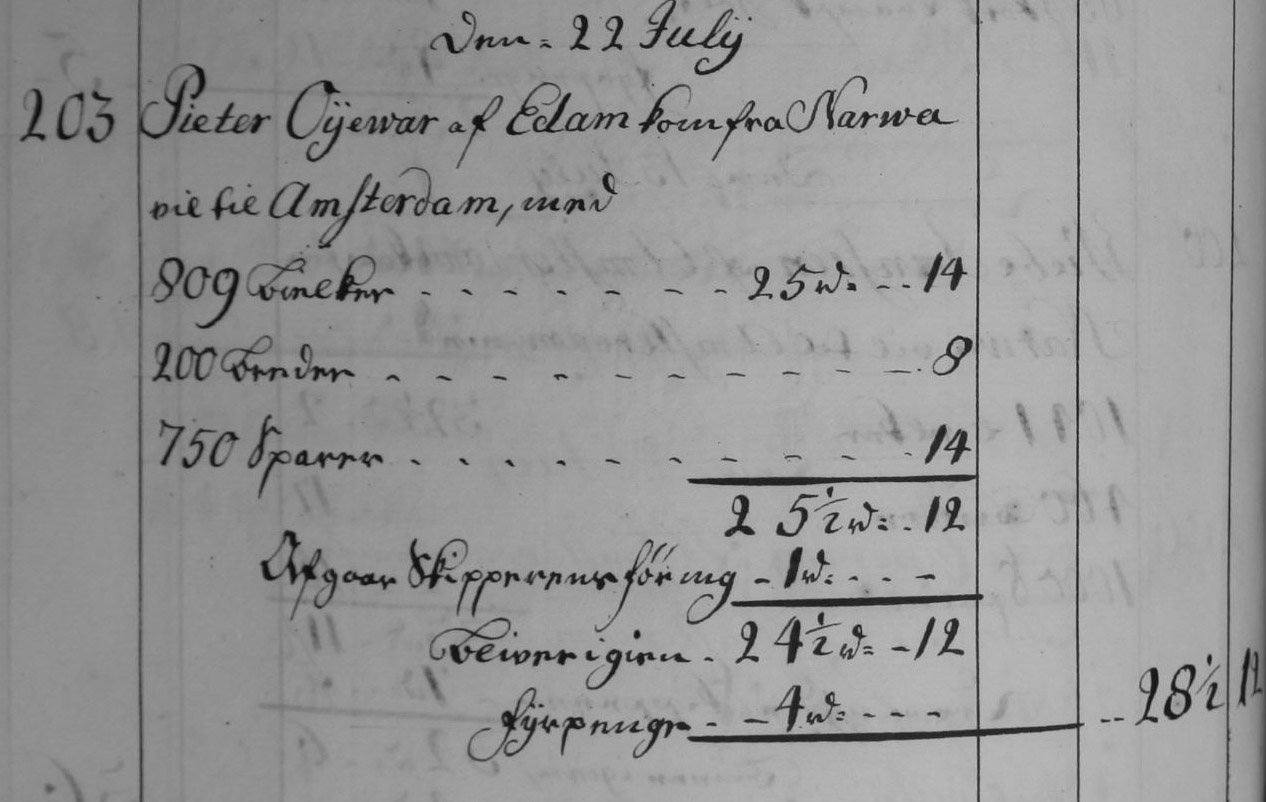 Den = 22 Julÿ
203 Pieter Oÿewar af Edam kom fra Narwa
vil til Amsterdam, med
809 Bielker - - - - - - - - 25 rd = - - 14
200 Breder - - - - - - - - - - 8
750 Sparrer - - - - - - - - - - 14
25½ rd = - 12
Afgaar Skipperens föring - 1 rd = - - -
Bliver igien - 24½ rd = - 12
fÿrpenge - - 4 rd = - - - - - 28½ 12